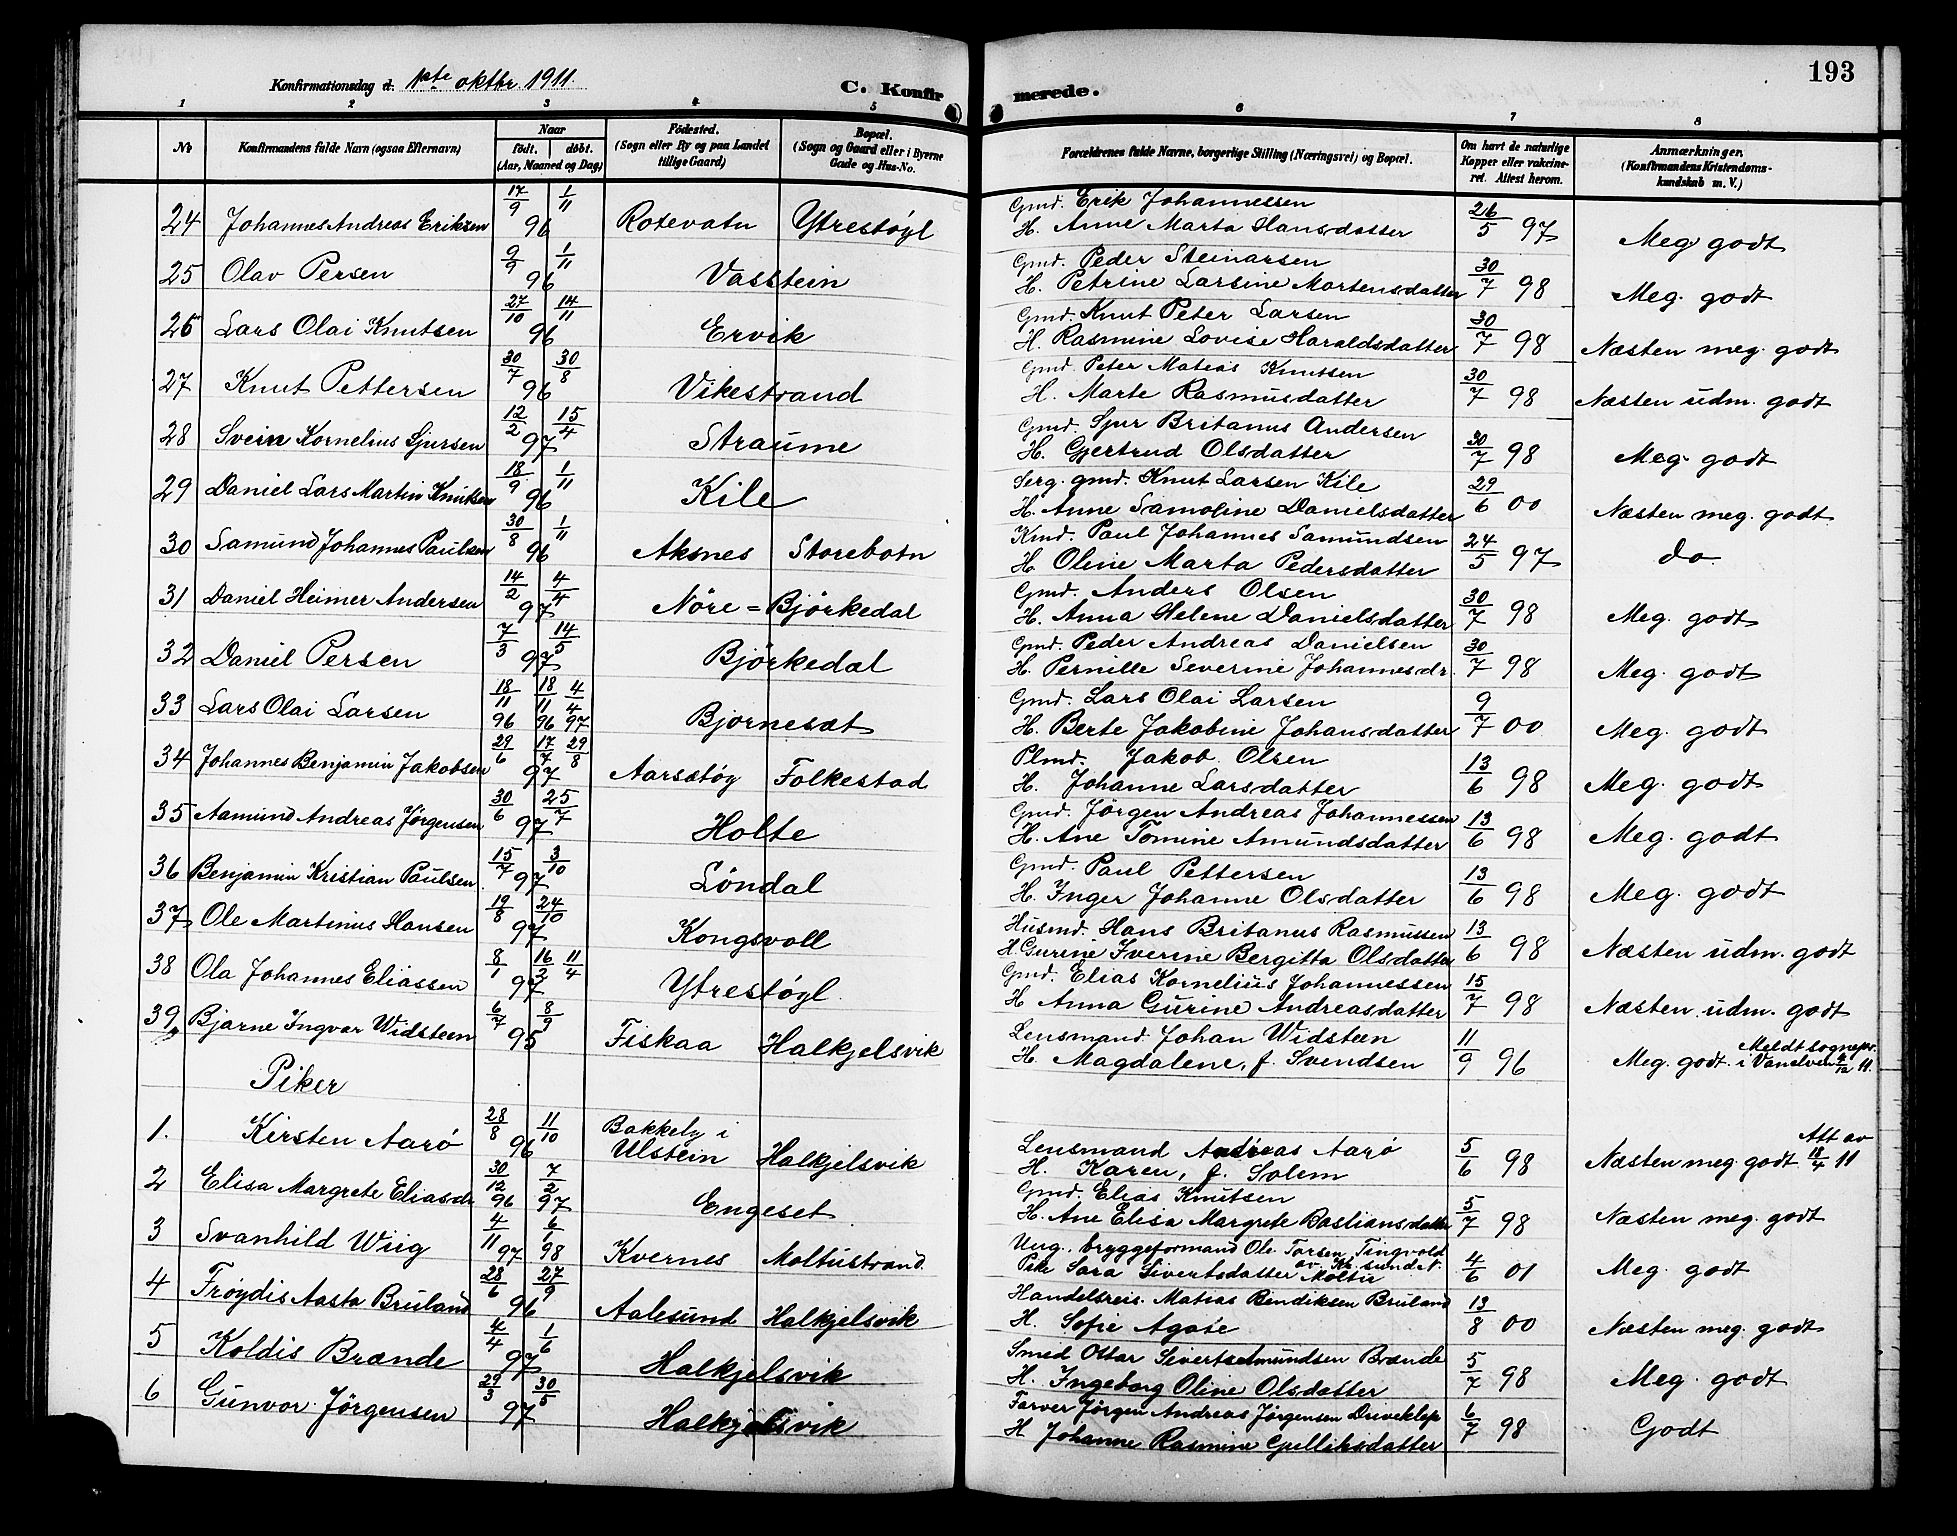 193
Konfirmationsdag d. 1ste oktbr. 1911.
C. Konfirmerede.
1 2 3 4 5 6 7 8
No | Konfirmandens fulde Navn (ogsaa Efternavn) | Naar født. døbt. (Aar, Maaned og Dag) | Fødested. (Sogn eller By og paa Landet tillige Gaard) | Bopæl. (Sogn og Gaard eller i Byerne Gade og Hus-No. | Forældrenes fulde Navne, borgerlige Stilling (Næringsvei) og Bopæl. | Om havt de naturlige Kopper eller vakcineret. Attest herom. | Anmærkninger. (Konfirmandens Kristendomskundskab m. V.)
24 Johannes Andreas Eriksen 17/9 1/11 96 Rotevatn Ytrestøyl Gmd. Erik Johannessen H. Anne Marta Hansdatter 26/5 97 Meg godt
25 Olav Persen 9/9 1/11 96 Vasstein Gmd. Peder Steinarsen H. Petrine Larsine Mortensdatter 30/7 98 Meg. godt
26 Lars Olai Knutsen 27/10 14/11 96 Ervik Gmd. Knut Peter Larsen H. Rasmine Lovise Haraldsdatter 30/7 98 Næsten meg. godt
27 Knut Pettersen 30/7 30/8 96 Vikestrand Gmd. Peter Matias Knutsen H. Marte Rasmusdatter 30/7 98 Næsten udm. godt
28 Svein Kornelius Sjursen 12/2 15/4 97 Straume Gmd. Sjur Britanus Andersen H. Gjertrud Olsdatter 30/7 98 Meg. godt
29 Daniel Lars Martin Knutsen 18/9 1/11 96 Kile Serg. gmd. Knut Larsen Kile H. Anne Samoline Danielsdatter 29/6 00 Næsten meg. godt
30 Samund Johannes Paulsen 30/8 1/11 96 Aksnes Storebotn Kmd. Paul Johannes Samundsen H. Oline Marta Pedersdatter 24/5 97 do
31 Daniel Heimer Andersen 14/2 4/4 97 Nöre = Björkedal Gmd. Anders Olsen H. Anna Helene Danielsdatter 30/7 98 Meg. godt
32 Daniel Persen 7/3 14/5 97 Björkedal Gmd. Peder Andreas Danielsen H. Pernille Severine Johannesdr. 30/7 98 Meg. godt
33 Lars Olai Larsen 18/11 96 18/11 96 4/4 97 Bjornesæt Gmd. Lars Olai Larsen H. Berte Jakobine Johansdatter 9/7 00 Meg. godt
34 Johannes Benjamin Jakobsen 29/6 17/7 29/8 97 Aarsetøy Folkestad Plmd. Jakob Olsen H. Johanne Larsdatter 13/6 98 Meg. godt
35 Aamund Andreas Jörgensen 30/6 25/7 97 Holte Gmd. Jörgen Andreas Johannessen H. Ane Tomine Amundsdatter 13/6 98 Meg. godt
36 Benjamin Kristian Paulsen 15/7 3/10 97 Löndal Gmd. Paul Pettersen H. Inger Johanne Olsdatter 13/6 98 Meg. godt
37 Ole Martinus Hansen 19/8 24/10 97 Kongsvoll Husmd. Hans Britanus Rasmussen H. Gurine Iverine Bergitta Olsdatter 13/6 98 Næsten udm. godt
38 Ola Johannes Eliassen 8/1 16/2 11/4 97 Ytrestøyl Gmd. Elias Kornelius Johannessen H. Anna Gurine Andreasdatter 15/7 98 Næsten udm. godt
39 Bjarne Ingvar Widsteen 6/7 8/9 95 Fiskaa Halkjelsvik Lensmand Johan Widsteen H. Magdalene, f. Svendsen 11/9 96 Meg. godt. Meldt sognepr. i Vanelven 4/10 11.
Piker
1. Kirsten Aarö 28/8 11/10 96 Bakkely i Ulstein Halkjelsvik Lensmand Andreas Aarö H. Karen, f. Solem 5/6 98 Næsten meg. godt Att av 18/4 11
2 Elisa Margrete Eliasdr 30/12 96 7/2 97 Engeset Gmd. Elias Knutsen H. Ane Elisa Margrete Bastiansdatter 5/7 98 Næsten meg. godt
3 Svanhild Wiig 4/11 97 6/1 98 Kvernes Moltustrand Ung. bryggeformand Ole Torsen Tingvold av Kr. sund N. Pike Sara Sivertsdatter Moltu 4/6 01 Meg. godt
4 Fröydis Aasta Bruland 28/6 27/9 96 Aalesund Halkjelsvik Handelsreis. Matias Bendiksen Bruland H. Sofie Agate 13/8 00 Næsten meg. godt
5 Koldis Brænde 4/4 1/6 97 Halkjelsvik Smed Ottar Sivert Edmundsen Brænde H. Ingeborg Oline Olsdatter 5/7 98 Meg. godt
6 Gunvor Jörgensen 29/3 30/5 97 Halkjelsvik Farver Jörgen Andreas Jörgensen Driveklep H Johanne Rasmine Gulliksdatter 6/7 98 Godt